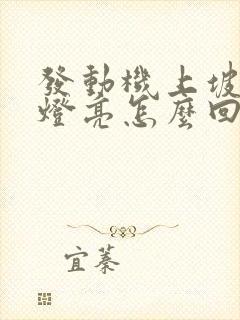 發動機上坡
燈亮怎麼回
宜蓁